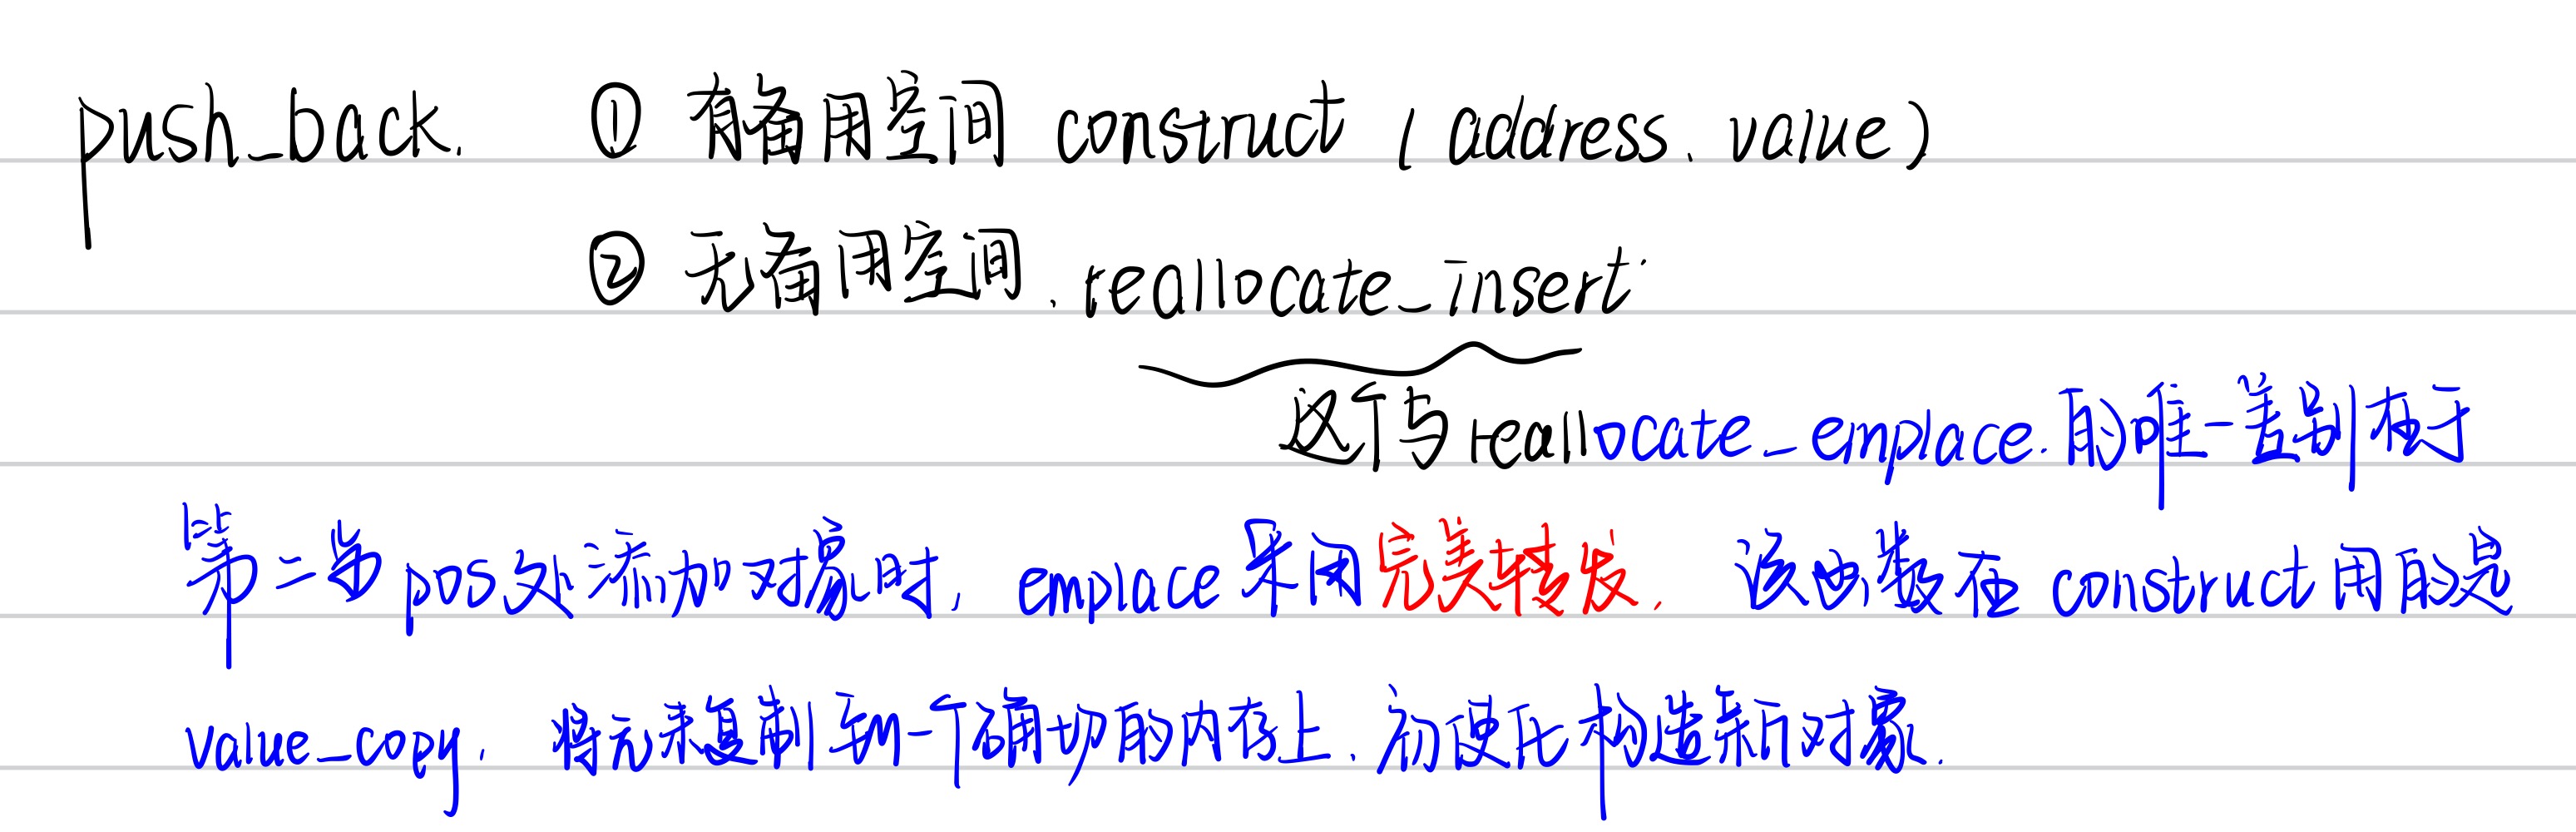 push_back. ① 有备用空间 construct (address, value)
② 无备用空间, reallocate_insert.
这个与reallocate_emplace.的唯一差别在于
第二步pos处添加对象时, emplace采用完美转发. 该函数在construct用的是
value_copy, 将元素复制到一个确切的内存上, 初使化构造新对象.